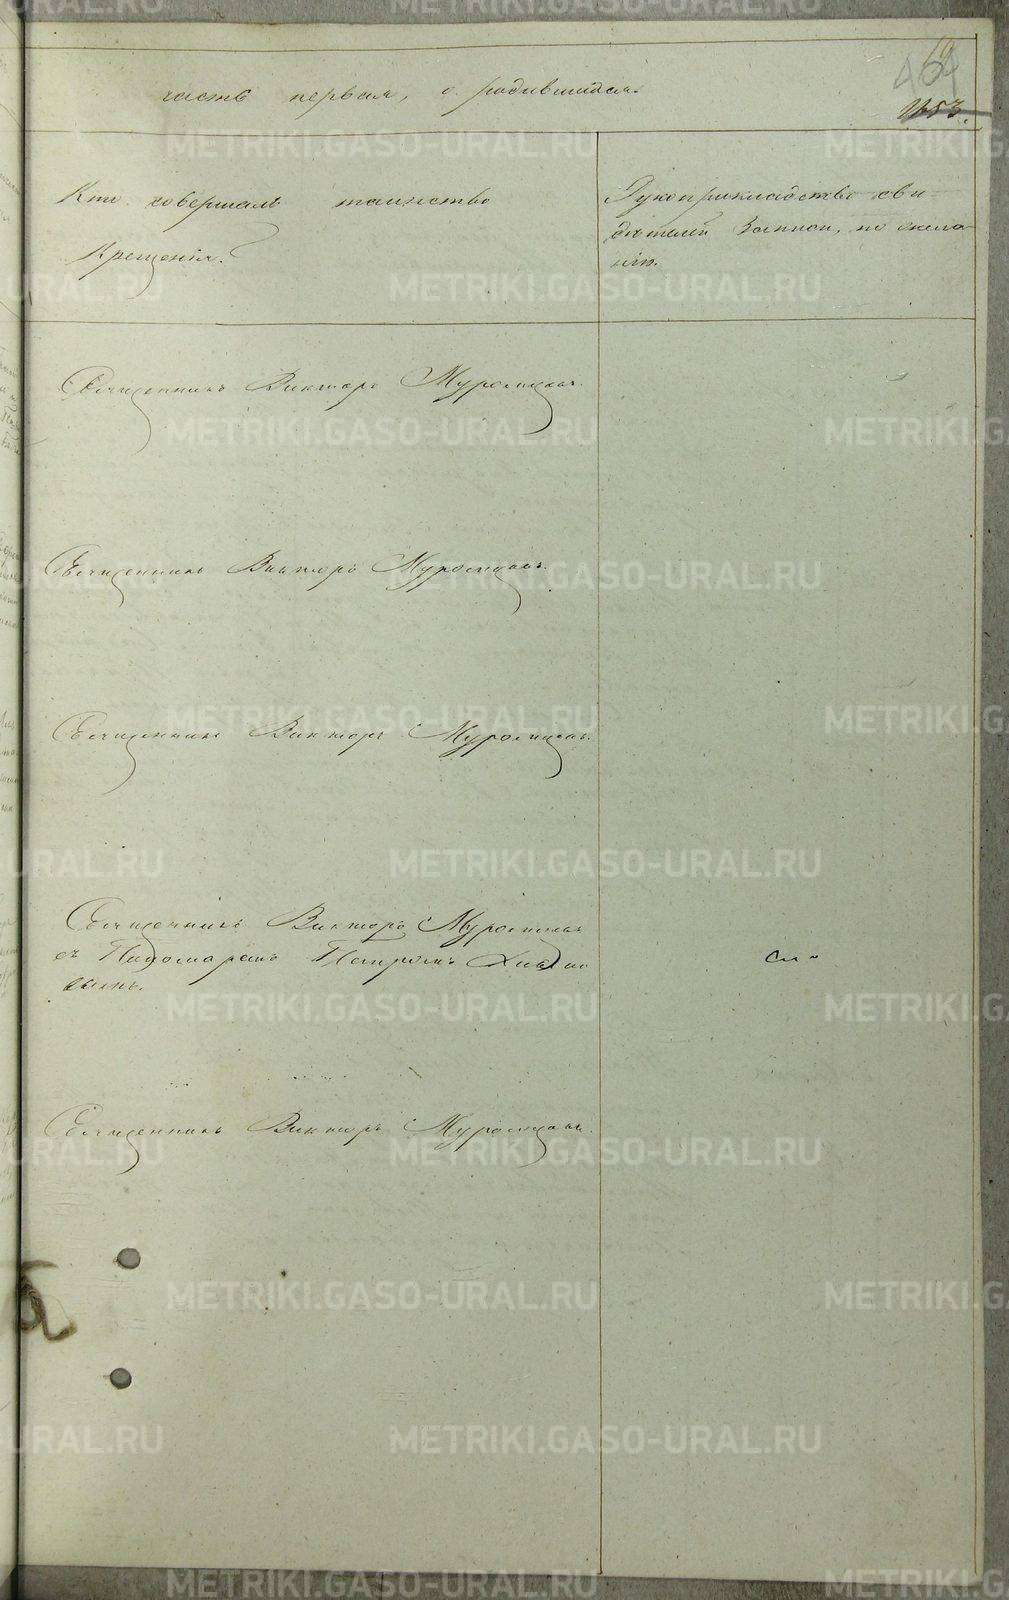 часть первая, о родившихся.
464
1153.
Кто совершалъ таинство
Крещенія?
Рукоприкладство сви-
дѣтелей записи, по жела-
нію.
Священникъ Викторъ Муромцовъ.
Священникъ Викторъ Муромцовъ.
Священникъ Викторъ Муромцовъ.
Священникъ Викторъ Муромцовъ
съ Пономаремъ Петромъ
Священникъ Викторъ Муромцовъ.
METRIKI.GASO-URAL.RU